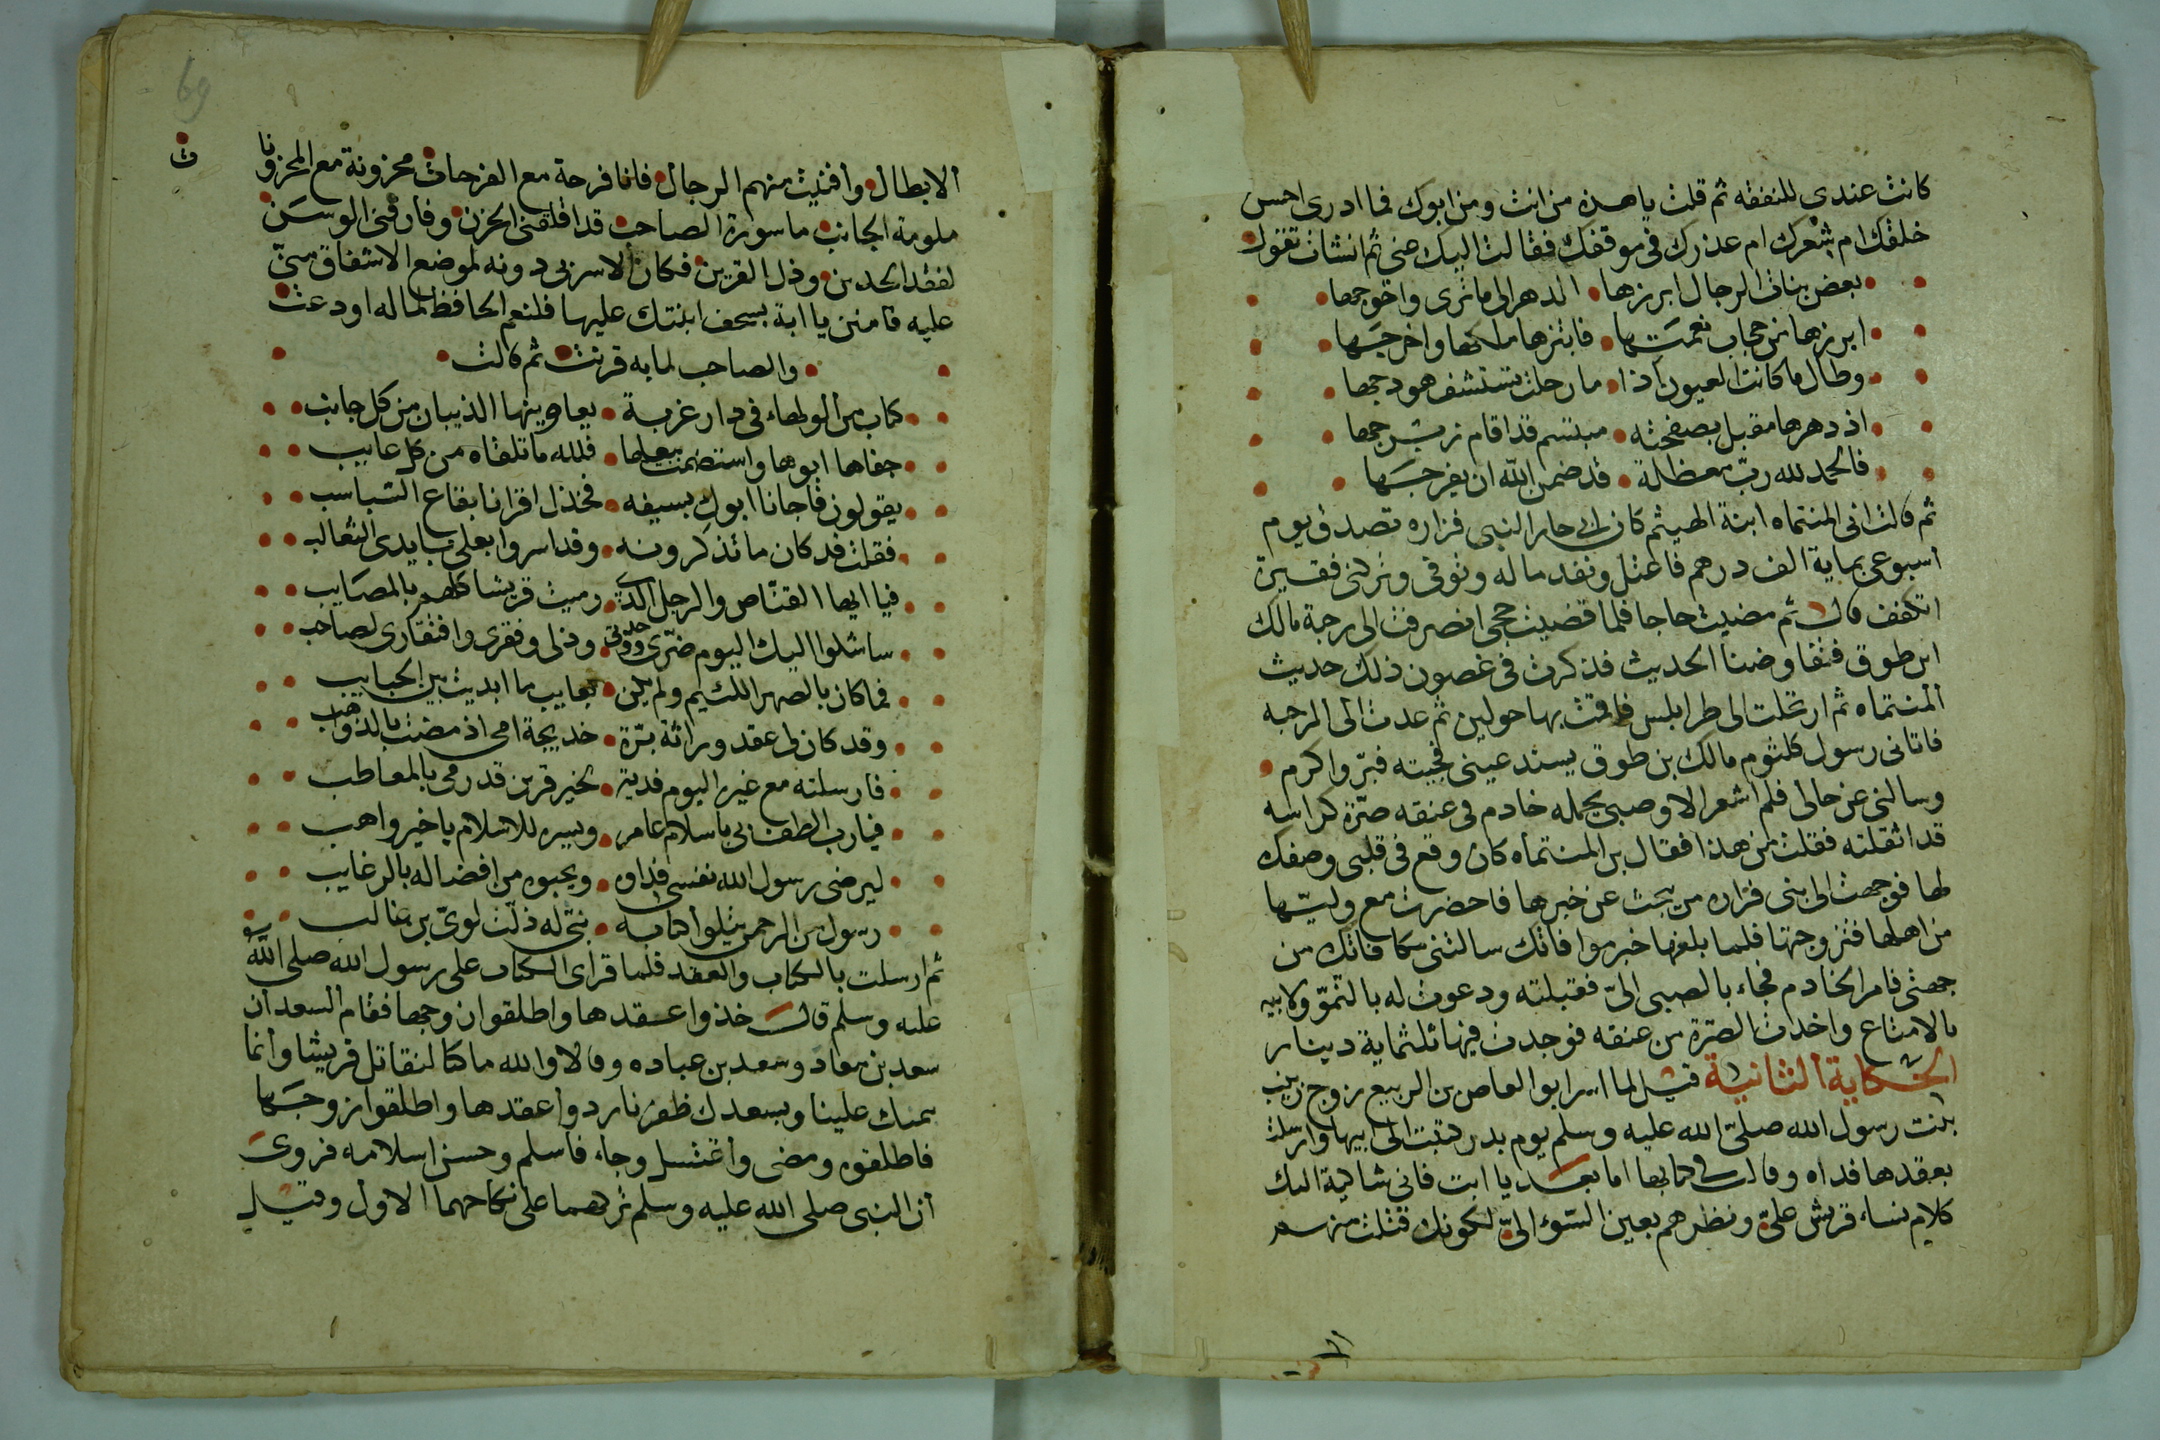 كانت عندى للنفقه ثم قلت يا هذه من انت ومن ابوك فما ادرى احسن
خلقك ام شعرك ام عذرك فى موقفك فقالت اليك عنى ثم انشات تقول
بعض بنات الرجال ابرزها الدهر الى ما ترى واخوجها
ابرزها من حجاب نعمتها فابتزها ملكها واخرجها
وطال ما كانت العيون اذا ما رحلت تستشف هودجها
اذ دهرها مقبل بصفحته مبتسم قد اقام زبرجها
فالحمد لله رب معظلة قد ضمن الله ان يفرجها
ثم قالت انى المنتماه ابنة الهيثم كان ابى جار النبى فزاره تصدق يوم
اسبوعى بماية الف درهم فاعتل ونفد ماله وتوفى وتركنى فقيرة
اتكفف قال ثم مضيت حاجا فلما قضيت حجى انصرفت الى رحبة مالك
ابن طوق فتفاوضنا الحديث فذكرت فى غصون ذلك حديث
المنتماه ثم ارتحلت الى طرابلس فاقمت بها حولين ثم عدت الى الرحبه
فاتانى رسول كلثوم مالك بن طوق يستدعينى فجيته فبر واكرم
وسالنى عن حالى فلم اشعر الا وصبى يحمله خادم فى عنقه صرة كراسه
قد اثقلته فقلت من هذا فقال بن المنتماه كان وقع فى قلبى وصفك
لها فوجهت الى بنى فزاره من يبحث عن خبرها فاحضرت مع وليها
من اهلها فتزوجتها فلما بلغها خبر موافاتك سالتنى مكافاتك من
جهتى فامر الخادم فجاء بالصبى الى فقبلته ودعوت له بالنمو ولابيه
بالامتاع واخذت الصرة من عنقه فوجدت فيها ثلثماية دينار
الحكاية الثانية قيل لما اسر ابو العاص بن الربيع زوج زينب
بنت رسول الله صلى الله عليه وسلم يوم بدر كتبت الى ابيها وارسلت
بعقدها فداه وقالت فى كتابها اما بعد يا ابت فانى شاكية اليك
كلام نساء قريش على ونظرهم بعين السوء الى لكونك قتلت منهم
69
الابطال وافنيت منهم الرجال فانا فرحة مع الفرحات محزونة مع المحزونات
ملومة الجانب ماسورة الصاحب قد اقلقنى الحزن وفارقنى الوسن
لفقد الخدين وذل القرين فكان الاسر بى دونه لموضع الاشفاق منى
عليه فامنن يا ابة بسحف ابنتك عليها فلنعم الحافظ لما له اودعت
والصاحب لما به قرنت ثم قالت
كتاب من الولهاء فى دار غربة يعاويها الذيبان من كل جانب
جفاها ابوها واستضمت ببعلها فلله ما تلقاه من كل عايب
يقولون فاجانا ابوك بسيفه فخذل اقرانا بقاع السباسب
فقلت قد كان ما تذكرونه وقد اسروا بعلى بايدى الثعالب
فيا ايها القناص والرجل الذى رميت قريشا كلهم بالمصايب
ساشكوا اليك اليوم ضرى ووحدتى وذلى وفقرى وافتقارى لصاحب
فما كان بالصهر اللئيم ولم يكن بعايب ما ابديت بين الحبايب
وقد كان لى عقد وراثة برة خديجة امى اذ مضت بالذواهب
فارسلته مع غير اليوم فدية لخير قرين قد رمى بالمعاطب
فيا رب الطف بى باسلام عامر ويسره للاسلام يا خير واهب
ليرضى رسول الله نفسى فداوه ويحبوه من افضاله بالرغايب
رسول من الرحمن يتلوا كتابه نبى له ذلت لوى بن غالب
ثم ارسلت بالكتاب والعقد فلما قراى الكتاب على رسول الله صلى الله
عليه وسلم قال خذوا عقدها واطلقوا زوجها فقام السعدان
سعد بن معاد وسعد بن عباده وقالا والله ما كنا لنقاتل قريشا وانما
بمنك علينا وبسعدك ظفرنا ردوا عقدها واطلقوا زوجها
فاطلقوه ومضى واغتسل وجاء فاسلم وحسن اسلامه فروى
ان النبى صلى الله عليه وسلم تركهما على نكاحهما الاول وقيل